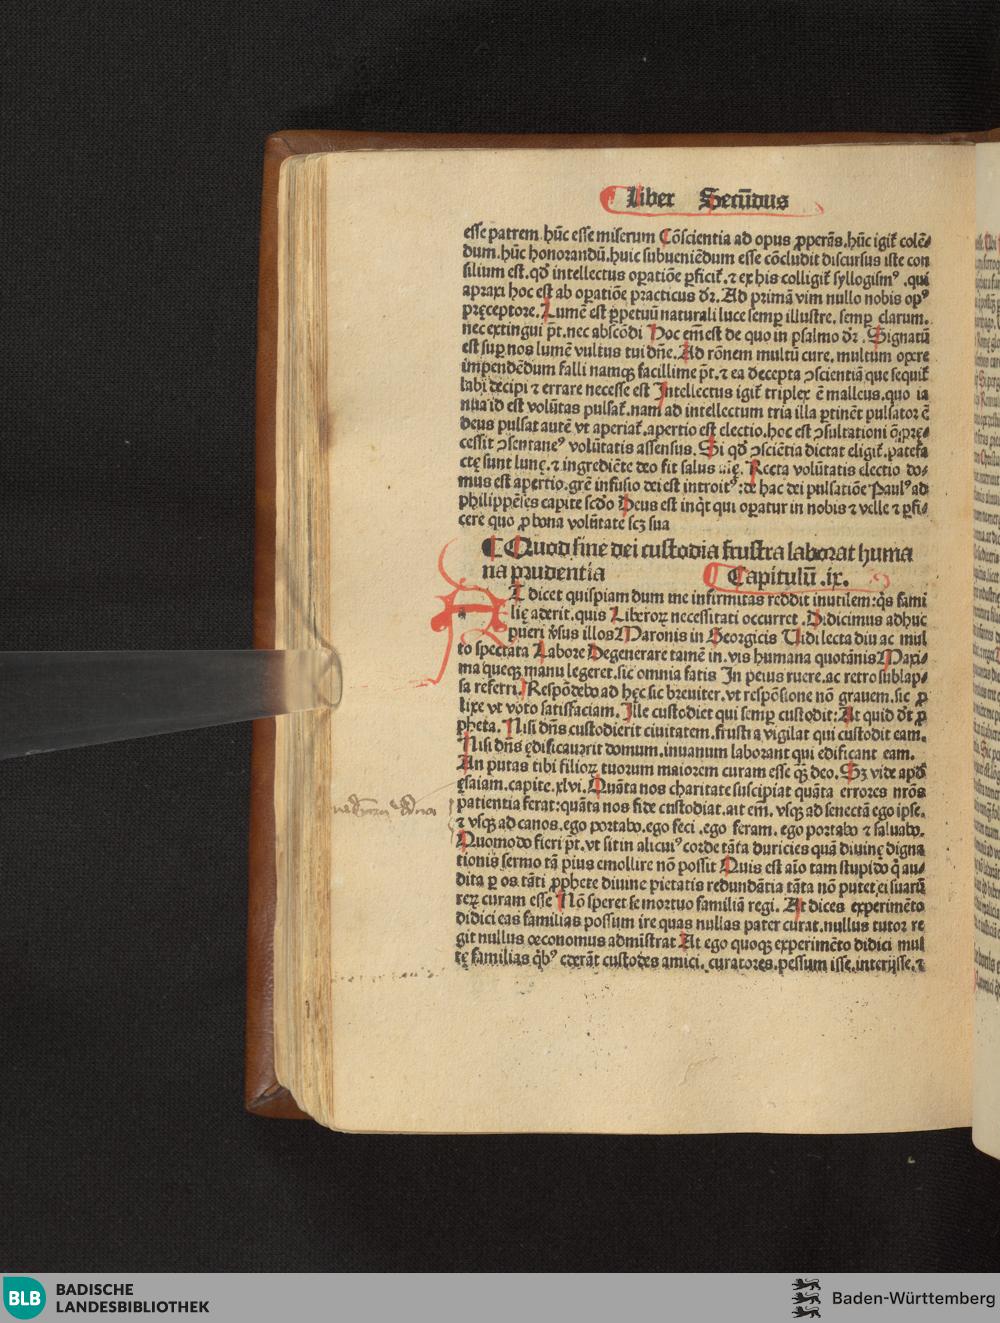 Liber Secūdus
esse patrem. hūc esse miserum Cōscientia ad opus ꝓperās. hūc igiť colē⸗
dum. hūc honorandū. huic subueniēdum esse cōcludit discursus iste con
silium est. qđ intellectus opatiōe ꝑficiť. ⁊ ex his colligiť syllogismꝰ. qui
apraxi hoc est ab opatiōe practicus dr̄. Ad primā vim nullo nobis opꝰ
pręceptore. Lumē est ꝑpetuū naturali luce semꝑ illustre. semꝑ clarum.
nec extingui pt̄. nec abscōdi Hoc em̄ est de quo in psalmo dr̄. Signatū
est suꝑ nos lumē vultus tui dn̄e. Ad rōnem multū cure. multum opere
impendēdum falli namqꝫ facillime pt̄. ⁊ ea decepta ↄscientiā que sequiť
labi decipi ⁊ errare necesse est Intellectus igiť triplex ē malleus. quo ia
nua id est volūtas pulsať. nam ad intellectum tria illa ꝑtinēt pulsator ē
deus pulsat autē vt aperiať. apertio est electio. hoc est ↄsultationi q̄ prę⸗
cessit ↄsentaneꝰ volūtatis assensus. Si qđ ↄsciētia dictat eligiť. patefa
ctę sunt ⁊ ingrediēte deo fit salus Recta volūtatis electio do⸗
mus est apertio. grē infusio dei est introitꝰ: de hac dei pulsatiōe Paulꝰ ad
philippēses capite scđo Deus est inq̇t qui opatur in nobis ⁊ velle ⁊ ꝑfi⸗
cere quo ꝓ bona volūtate scꝫ sua
¶ Quod sine dei custodia frustra laborat huma
na prudentia Capitulū .ix.
At dicet quispiam dum me infirmitas reddit inutilem: q̇s fami
lię aderit. quis Liberoꝝ necessitati occurret. Didicimus adhuc
pueri v̓sus illos Maronis in Georgicis Vidi lecta diu ac mul
to spectata Labore Degenerare tamē in. vis humana quotānis Maxi⸗
ma queqꝫ manu legeret. sic omnia fatis In peius ruere. ac retro sublap⸗
sa referri. Respōdebo ad hęc sic breuiter. vt respōsione nō grauem. sic ꝓ
lixe vt voto satisfaciam. Ille custodiet qui semꝑ custodit: At quid dr̄t ꝓ
pheta. Nisi dn̄s custodierit ciuitatem. frustra vigilat qui custodit eam.
Nisi dn̄s ędificauerit domum. inuanum laborant qui edificant eam.
An putas tibi filioꝝ tuorum maiorem curam esse qꝫ deo. Sꝫ vide apđ
ęsaiam. capite. xlvi. Quāta nos charitate suscipiat quāta errores nr̄os
patientia ferat: quāta nos fide custodiat. ait em̄. vsqꝫ ad senectā ego ipse.
⁊ vsqꝫ ad canos. ego portabo. ego feci. ego feram. ego portabo ⁊ saluabo.
Quomodo fieri pt̄. vt sit in alicuiꝰ corde tāta duricies quā diuinę digna
tionis sermo tā pius emollire nō possit Quis est aīo tam stupido q̇ au⸗
dita ꝑ os tāti ꝓphete diuine pietatis redundātia tāta nō putet ei suarū
reꝝ curam esse Nō speret se mortuo familiā regi. At dices experimēto
didici eas familias possum ire quas nullas pater curat. nullus tutor re
git nullus œconomus admistrat At ego quoqꝫ experimēto didici mul
tę familias q̇bꝰ exerāt custodes amici. curatores. pessum isse. interijsse. ⁊
BLB BADISCHE
LANDESBIBLIOTHEK
Baden-Württemberg